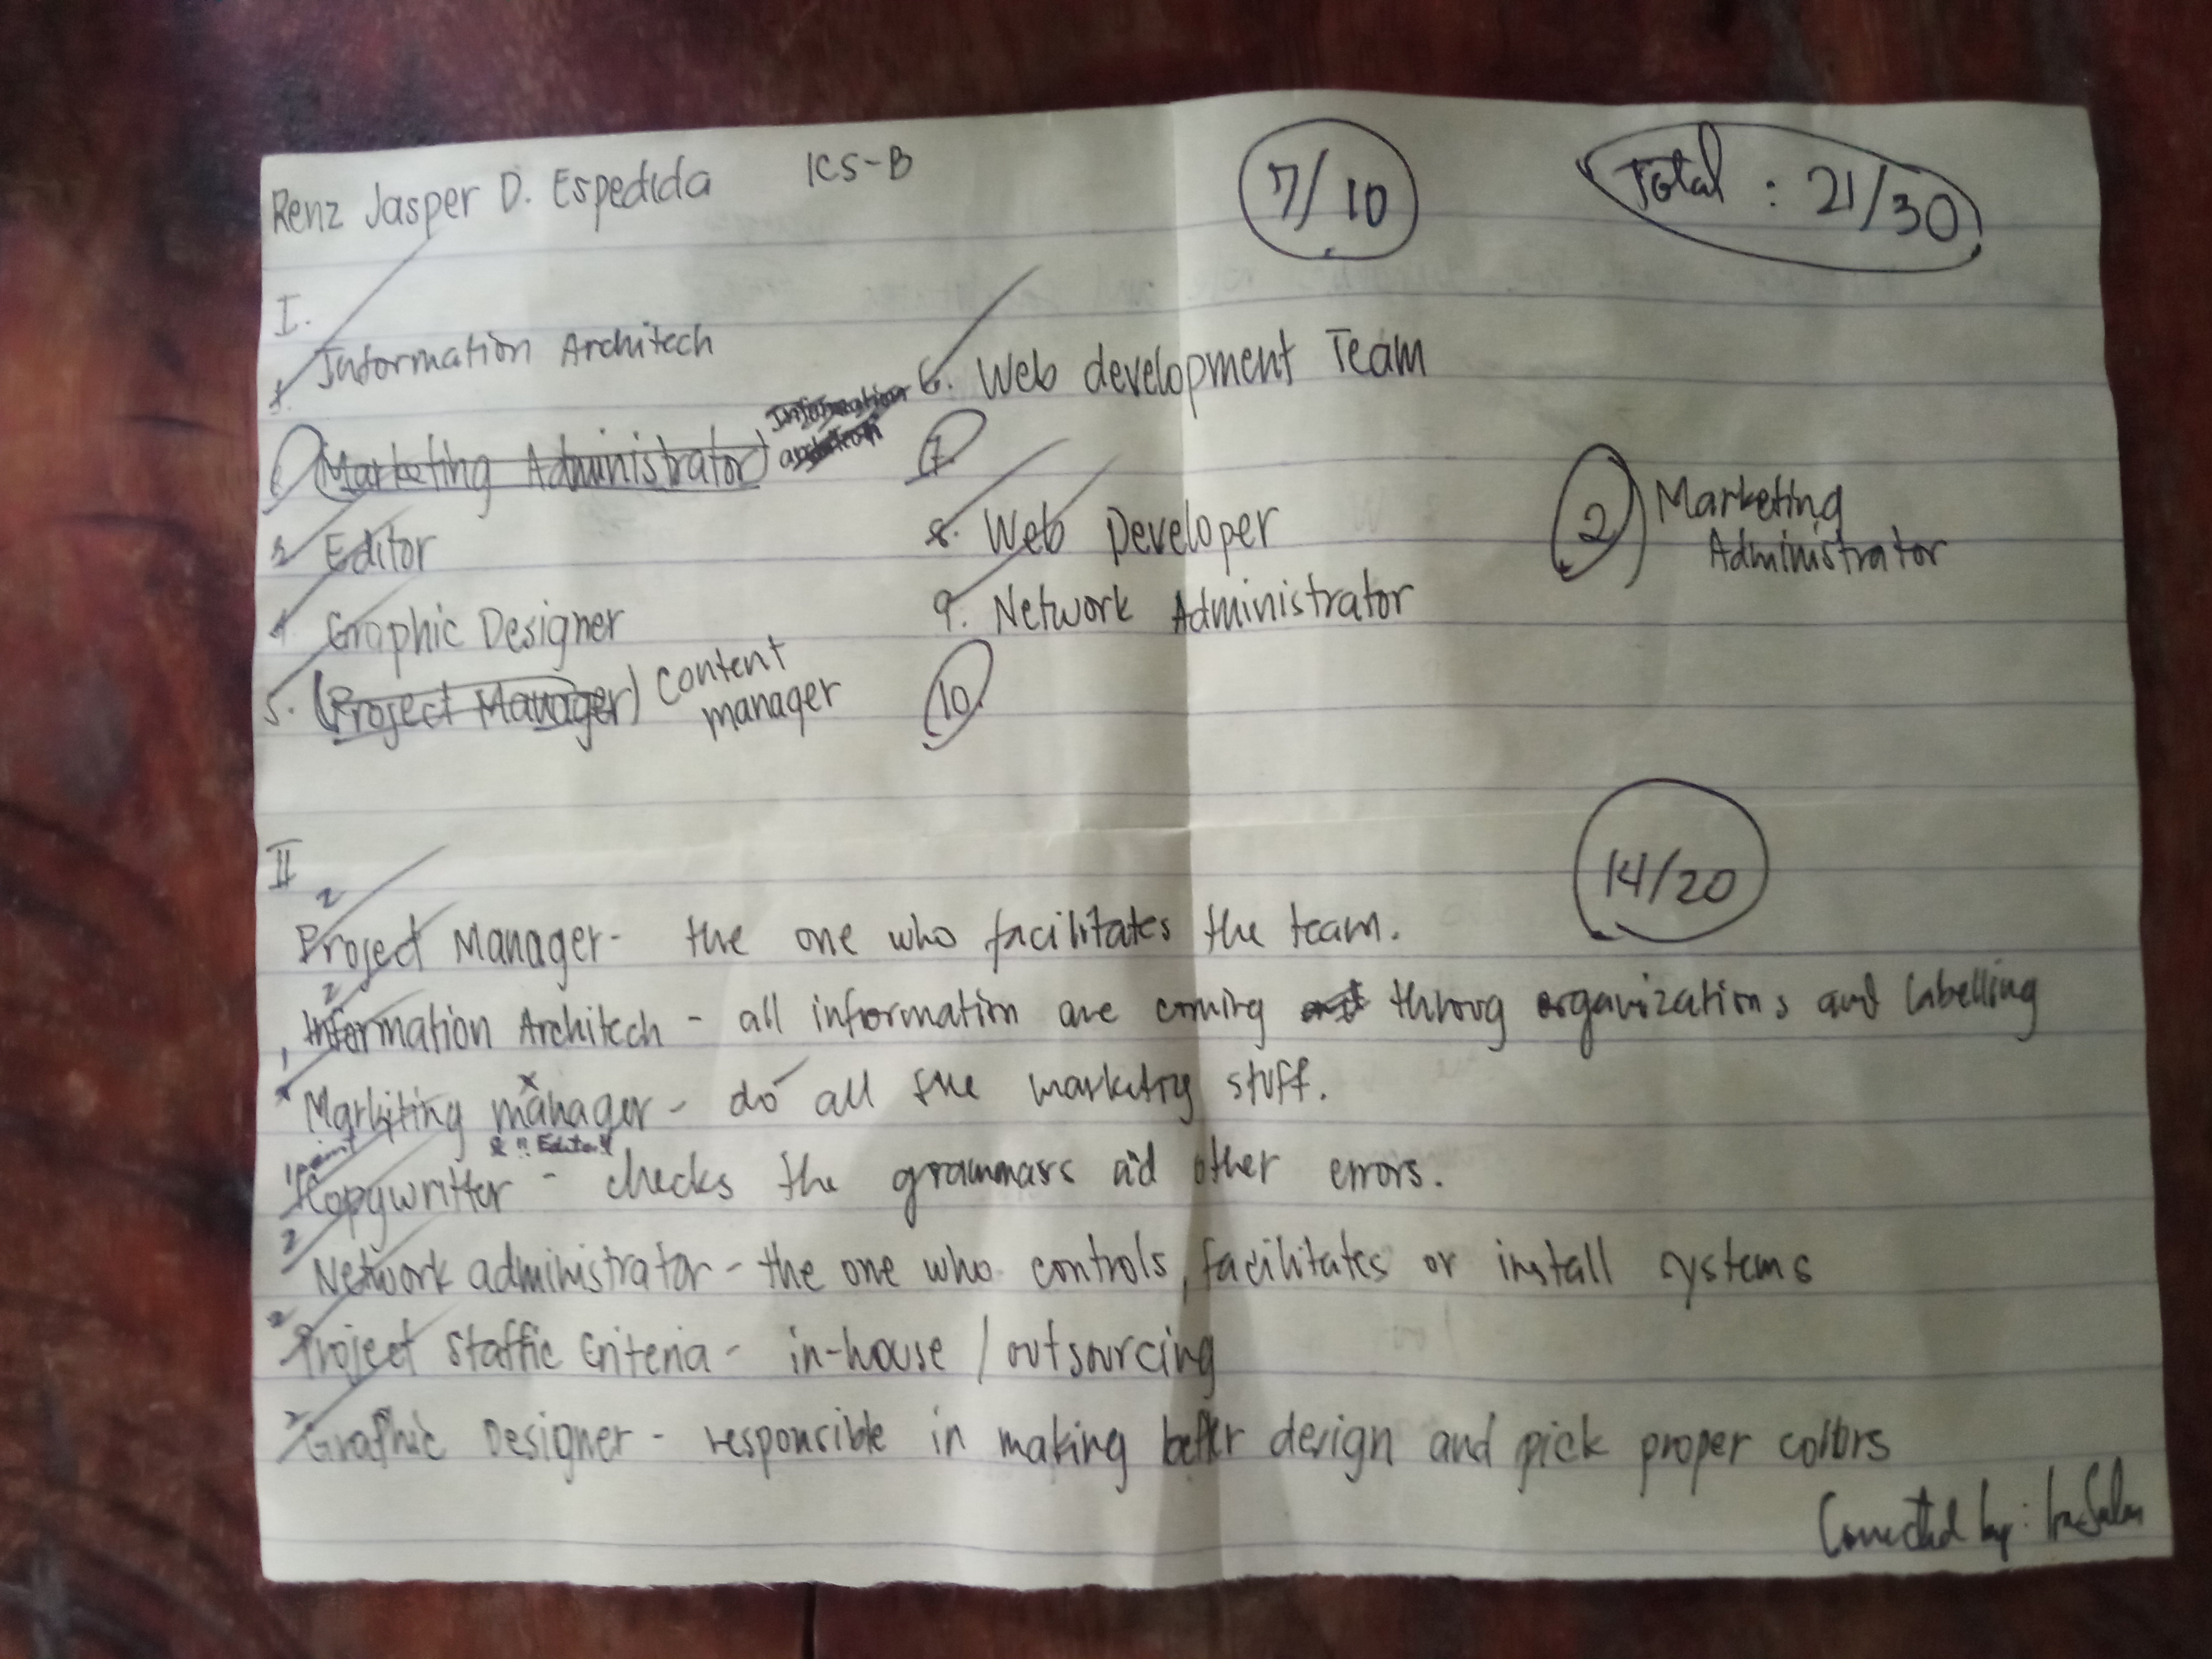 Renz Jasper D. Espedida ICS-B
7/10
Total : 21/30
I.
1. Information Architech
Marketing Administrator
3. Editor
4. Graphic Designer
5. (Project Manager) Content manager
6. Web development Team
7.
8. Web Developer
9. Network Administrator
10.
2) Marketing
Administrator
II
14/20
2
Project Manager - the one who facilitates the team.
2
Information Architech - all information are coming throug organizations and labelling
1
Markiting manager - do all the marketing stuff.
x
1 point
"Editor"
Copywritter - checks the grammars ad other errors.
2
Network administrator - the one who controls, facilitates or install systems
2
Project Staffic Criteria - in-house / outsourcing
2
Graphic Designer - responsible in making better design and pick proper collors
Corrected by: